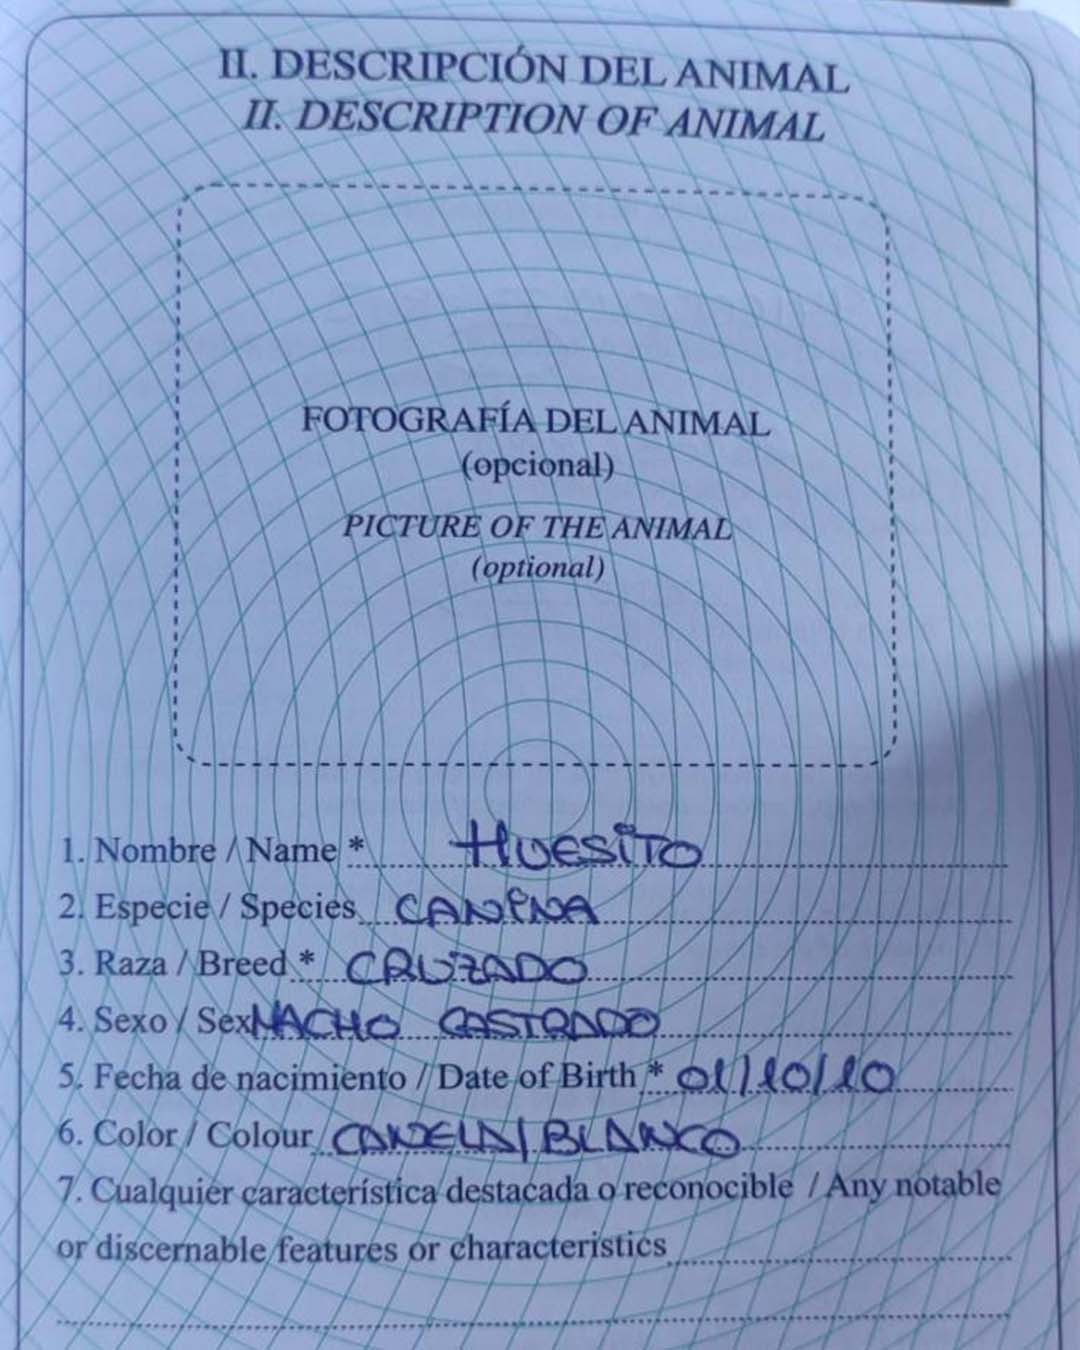 II. DESCRIPCIÓN DEL ANIMAL
II. DESCRIPTION OF ANIMAL
FOTOGRAFÍA DEL ANIMAL
(opcional)
PICTURE OF THE ANIMAL
(optional)
1. Nombre / Name * HUESITO
2. Especie / Species CANINA
3. Raza / Breed * CRUZADO
4. Sexo / Sex MACHO CASTRADO
5. Fecha de nacimiento / Date of Birth * 01/10/10
6. Color / Colour CANELA/BLANCO
7. Cualquier característica destacada o reconocible / Any notable
or discernable features or characteristics